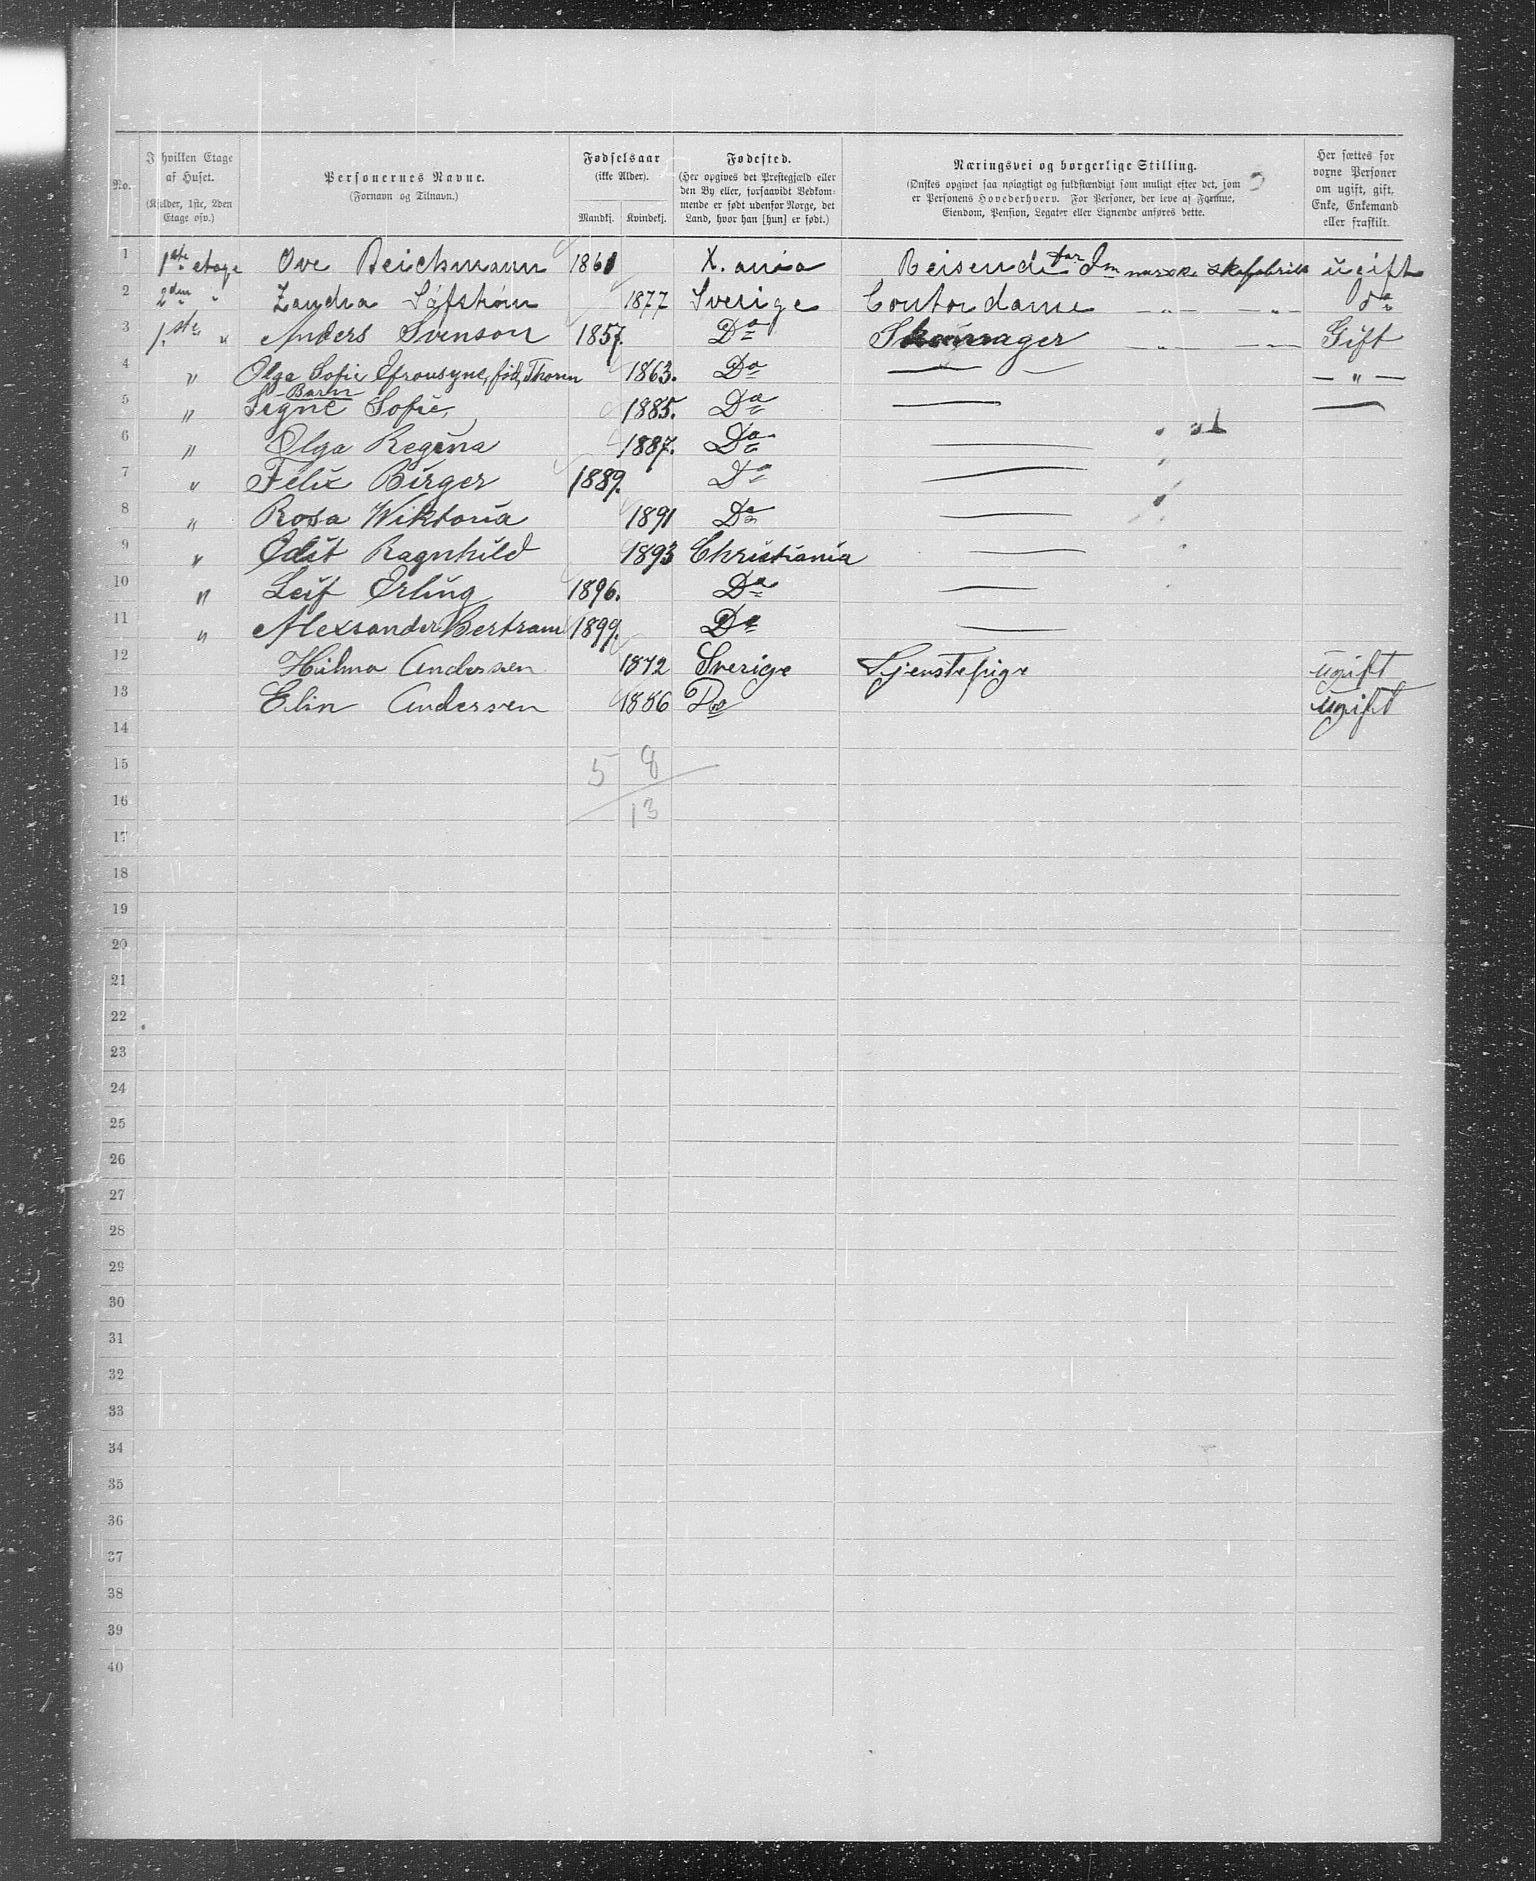 No. | I hvilken Etage af Huset. (Kjelder, 1ste, 2den Etage osv.) | Personernes Navne. (Fornavn og Tilnavn.) | Fødselsaar (ikke Alder). Mandkj. Kvindekj. | Fødested. (Her opgives det Prestegjæld eller den By eller, forsaavidt Vedkommende er født udenfor Norge, det Land, hvor han [hun] er født.) | Næringsvei og borgerlige Stilling. (Ønskes opgivet saa nøiagtigt og fuldstændigt som muligt efter det, som er Personens Hovederhverv. For Personer, der leve af Formue, Eiendom, Pension, Legater eller Lignende anføres dette. | Her sættes for voxne Personer om ugift, gift, Enke, Enkemand eller fraskilt.
1 1ste etage Ove Beichmann 1861 X.ania Reisende for skofabrik ugift
2 2den " Zandra Söfström 1877 Sverige Contordame — " — — " — do
3 1.ste " Anders Svenson 1857. Do Skomager — " — — " — Gift
4 " Olga Sofie Efrousyne, fød, Thoren 1863. Do — — — " —
Barn
5 " Signe Sofie, 1885. Do — —
6 " Olga Regina 1887. Do —
7 " Felix Birger 1889. Do —
8 " Rosa Wiktoria 1891 Do —
9 " Odit Ragnhild 1893 Christiania —
10 " Leif Erling 1896. Do —
11 " Alexsander Bertram 1899. Do —
12 Hilma Andersen 1872 Sverige Tjenstepige ugift
13 Elin Andersen 1886 Do ugift
14
15 5 8
16 13
17
18
19
20
21
22
23
24
25
26
27
28
29
30
31
32
33
34
35
36
37
38
39
40